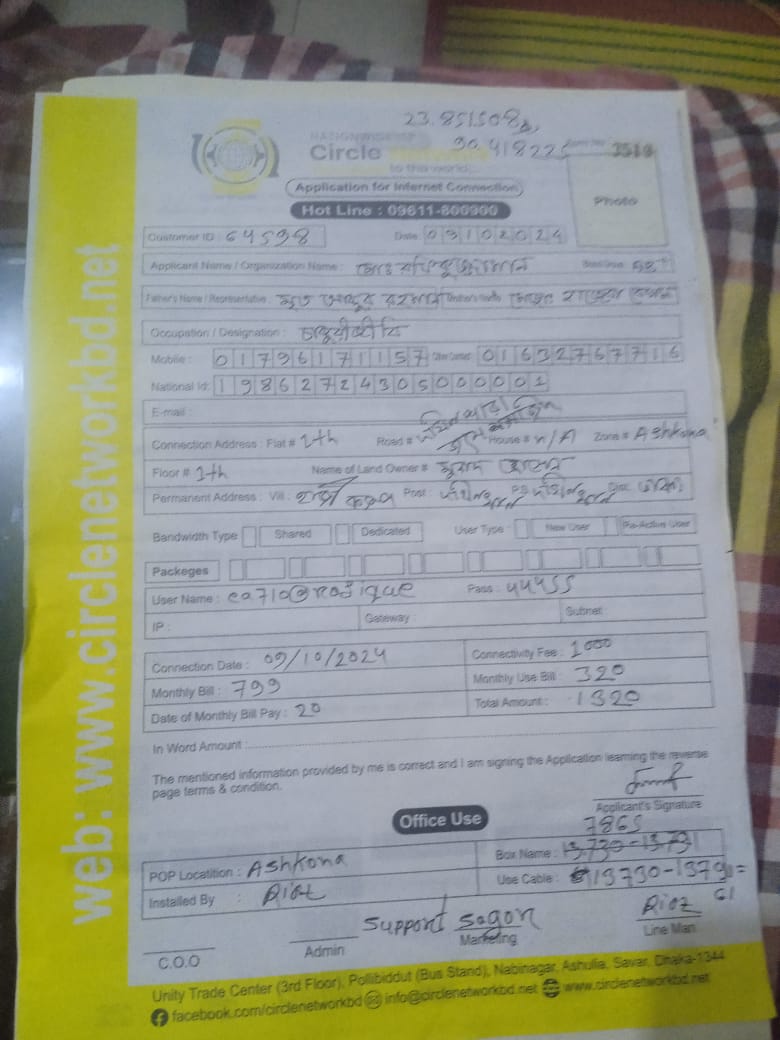 23.851508,
90.418225
3519
NATIONWIDE ISP
Circle Network
to the world...
Application for Internet Connection
Hot Line : 09611-800900
Photo
Customer ID : 64598
Date 09102024
Applicant Name / Organization Name : মোঃ রফিকুজ্জামান
Father's Name / Representative : মৃত আব্দুর রহমান Mother's Name
Occupation / Designation : চাকুরীজীবি
Mobile : 01796171157 01632767716
National Id: 19862724305000001
E-mail :
Connection Address : Flat # 2th Road # House # N/A Zone # Ashkona
Floor # 2th Name of Land Owner #
Permanent Address : Vill : Post : PS Dist:
Bandwidth Type Shared Dedicated User Type : New User Re-Active User
Packeges
User Name : ca710@rafique Pass : 44455
IP : Gateway : Subnet :
Connection Date : 09/10/2024 Connectivity Fee : 1000
Monthly Bill : 799 Monthly Use Bill : 320
Date of Monthly Bill Pay : 20 Total Amount : 1320
In Word Amount :
The mentioned information provided by me is correct and I am signing the Application learning the reverse
page terms & condition.
Applicant's Signature
Office Use
7865
POP Locatition : Ashkona Box Name : 13730-13791
Installed By : Riaz Use Cable : 13730-13790=
61
Support Sagon Riaz
C.O.O Admin Marketing Line Man
Unity Trade Center (3rd Floor), Pollibiddut (Bus Stand), Nabinagar, Ashulia, Savar, Dhaka-1344
facebook.com/circlenetworkbd info@circlenetworkbd.net www.circlenetworkbd.net
web: www.circlenetworkbd.net